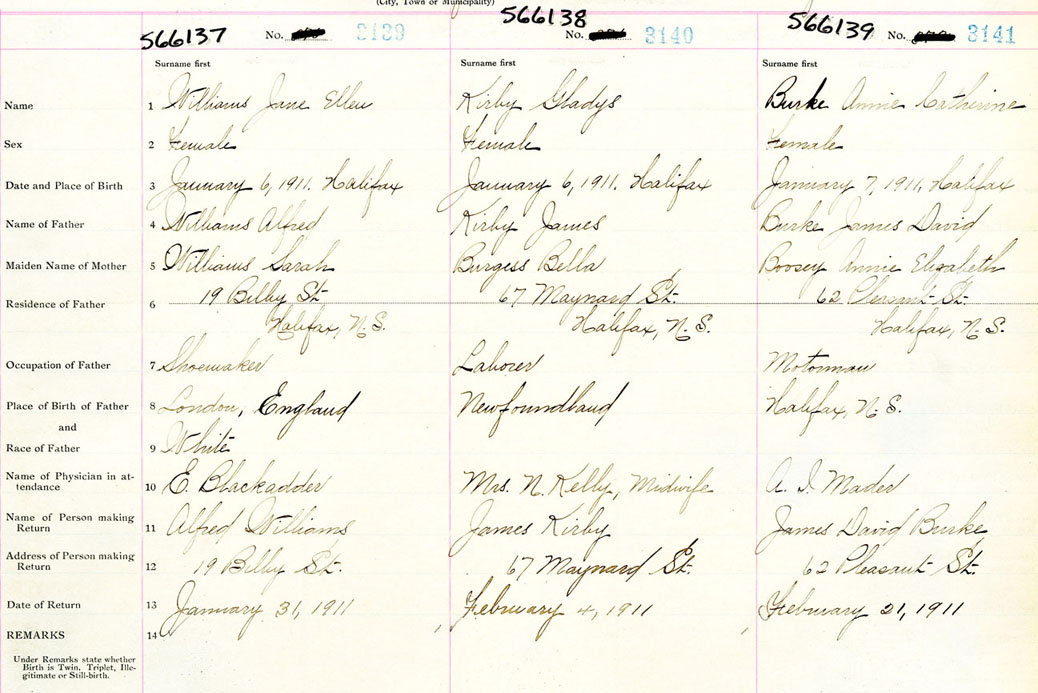 (City, Town or Municipality)
566137 No. 3139 566138 No. 3140 566139 No. 3141
Surname first Surname first Surname first
Name 1 Williams Jane Ellen Kirby Gladys Burke Annie Catherine
Sex 2 Female Female Female
Date and Place of Birth 3 January 6, 1911. Halifax January 6, 1911. Halifax January 7, 1911, Halifax
Name of Father 4 Williams Alfred Kirby James Burke James David
Maiden Name of Mother 5 Williams Sarah Burgess Bella Boosey Annie Elizabeth
Residence of Father 6 19 Bilby St 67 Maynard St. 62 Pleasant St.
Halifax, N.S. Halifax, N.S. Halifax, N.S.
Occupation of Father 7 Shoemaker Laborer Motorman
Place of Birth of Father 8 London, England Newfoundland Halifax, N.S.
and
Race of Father 9 White
Name of Physician in at-
tendance 10 E. Blackadder Mrs. N. Kelly, Midwife A. I. Mader
Name of Person making
Return 11 Alfred Williams James Kirby James David Burke
Address of Person making
Return 12 19 Bilby St. 67 Maynard St. 62 Pleasant St.
Date of Return 13 January 31, 1911 February 4, 1911 February 21, 1911
REMARKS 14
Under Remarks state whether
Birth is Twin, Triplet, Ille-
gitimate or Still-birth.